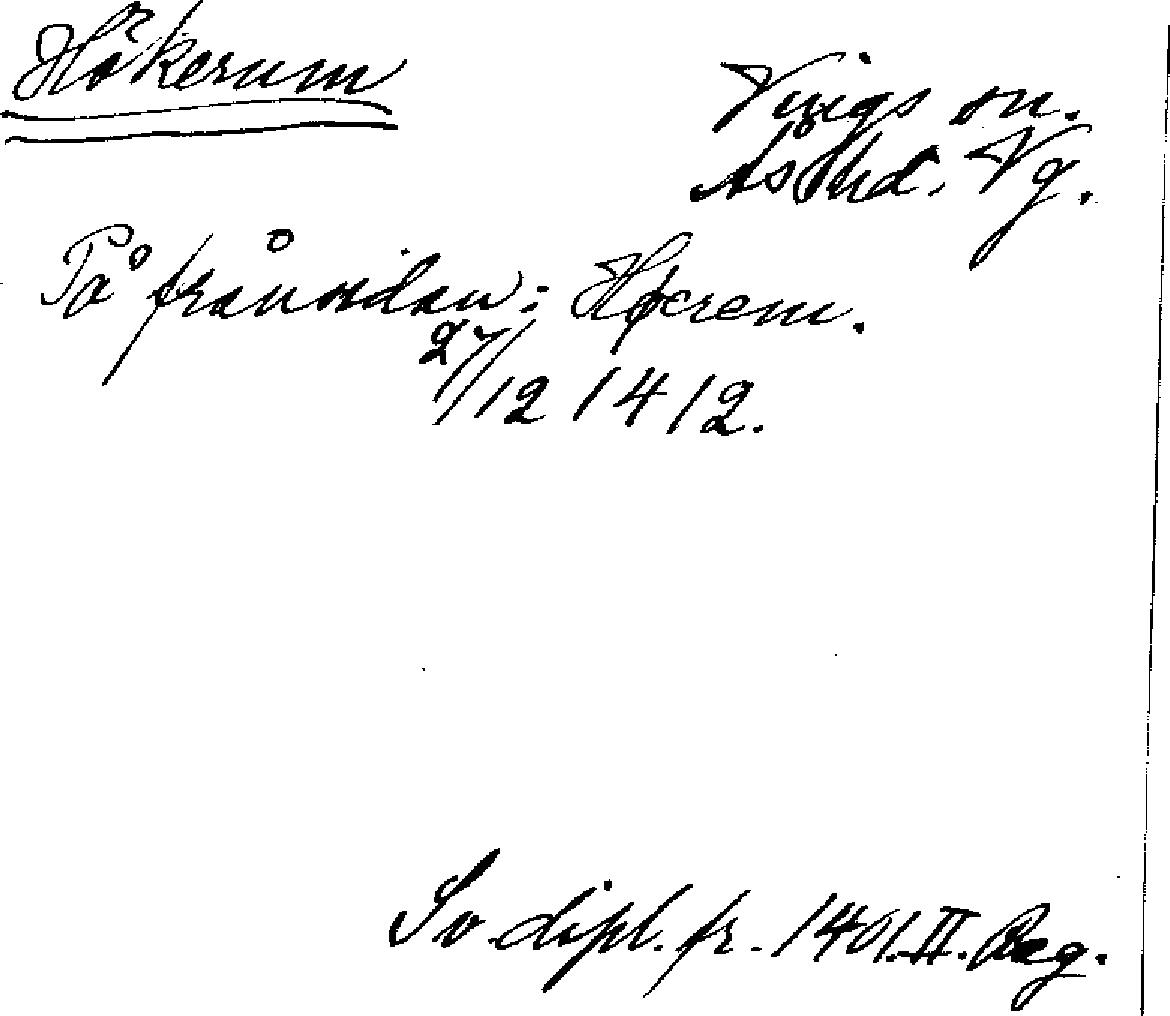 Hökerum
Vings sn.
Ås hd. Vg.
På frånsidan: Høcrem.
27/12 1412.
Sv. dipl. fr. 1401. II. Reg.